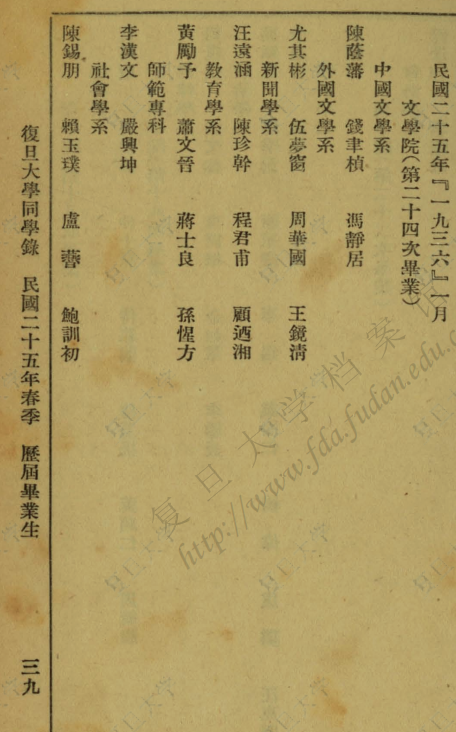 民國二十五年『一九三六』一月
文學院(第二十四次畢業)
中國文學系
陳蔭藩 錢聿楨 馮靜居
外國文學系
尤其彬 伍夢窗 周華國 王鏡清
新聞學系
汪遠涵 陳珍幹 程君甫 顧迺湘
教育學系
黃勵予 蕭文晉 蔣士良 孫惺方
師範專科
李漢文 嚴興坤
社會學系
陳錫朋 賴玉璞 盧藝 鮑訓初
復旦大學同學錄 民國二十五年春季 歷屆畢業生 三九
复旦大学档案馆
http://www.fda.fudan.edu.c